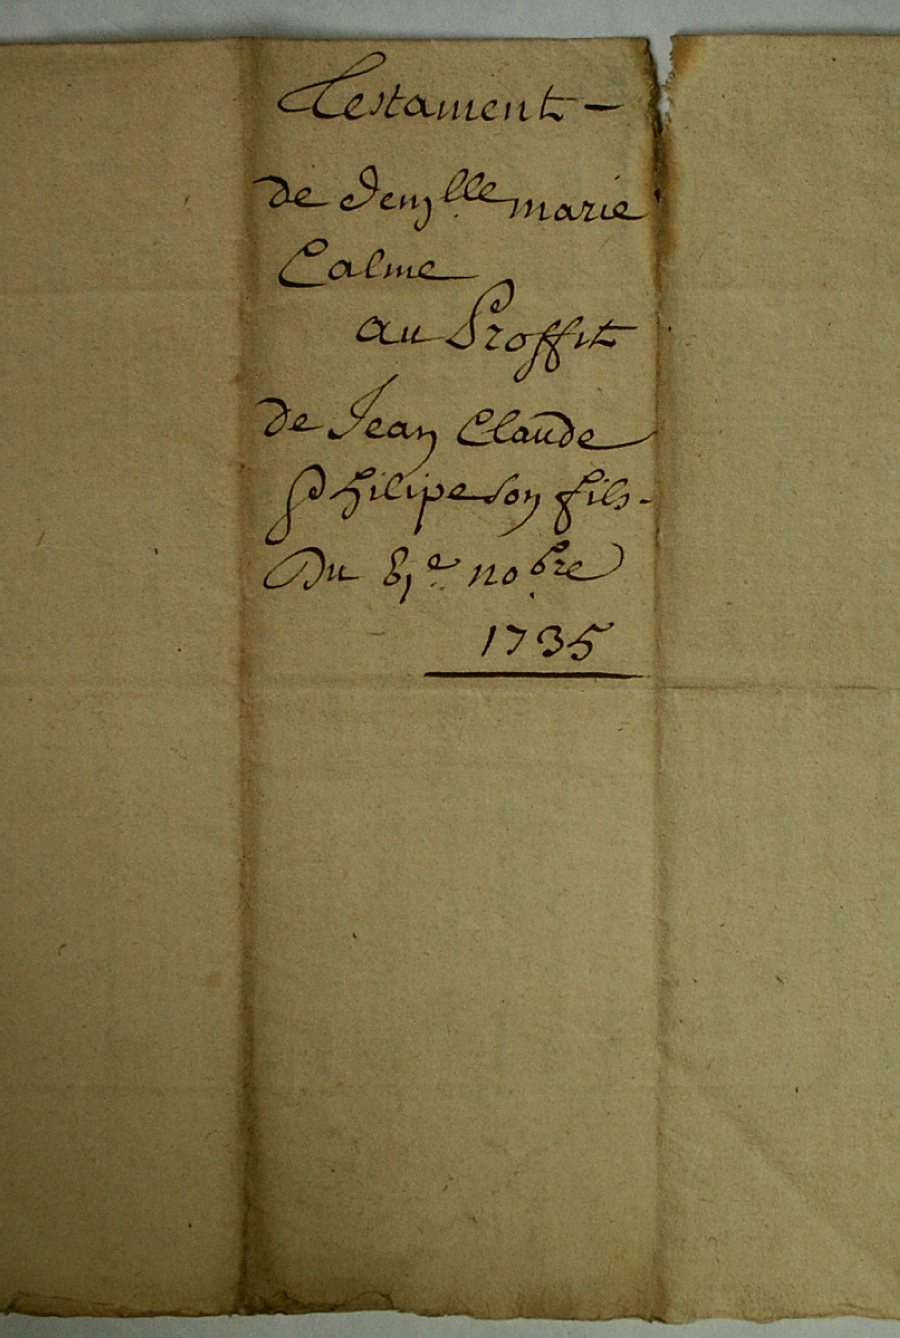 Testament -
de Demlle marie
Calme
au Proffit
de Jean Claude
Philipe son fils.
Du 8e nobre
1735